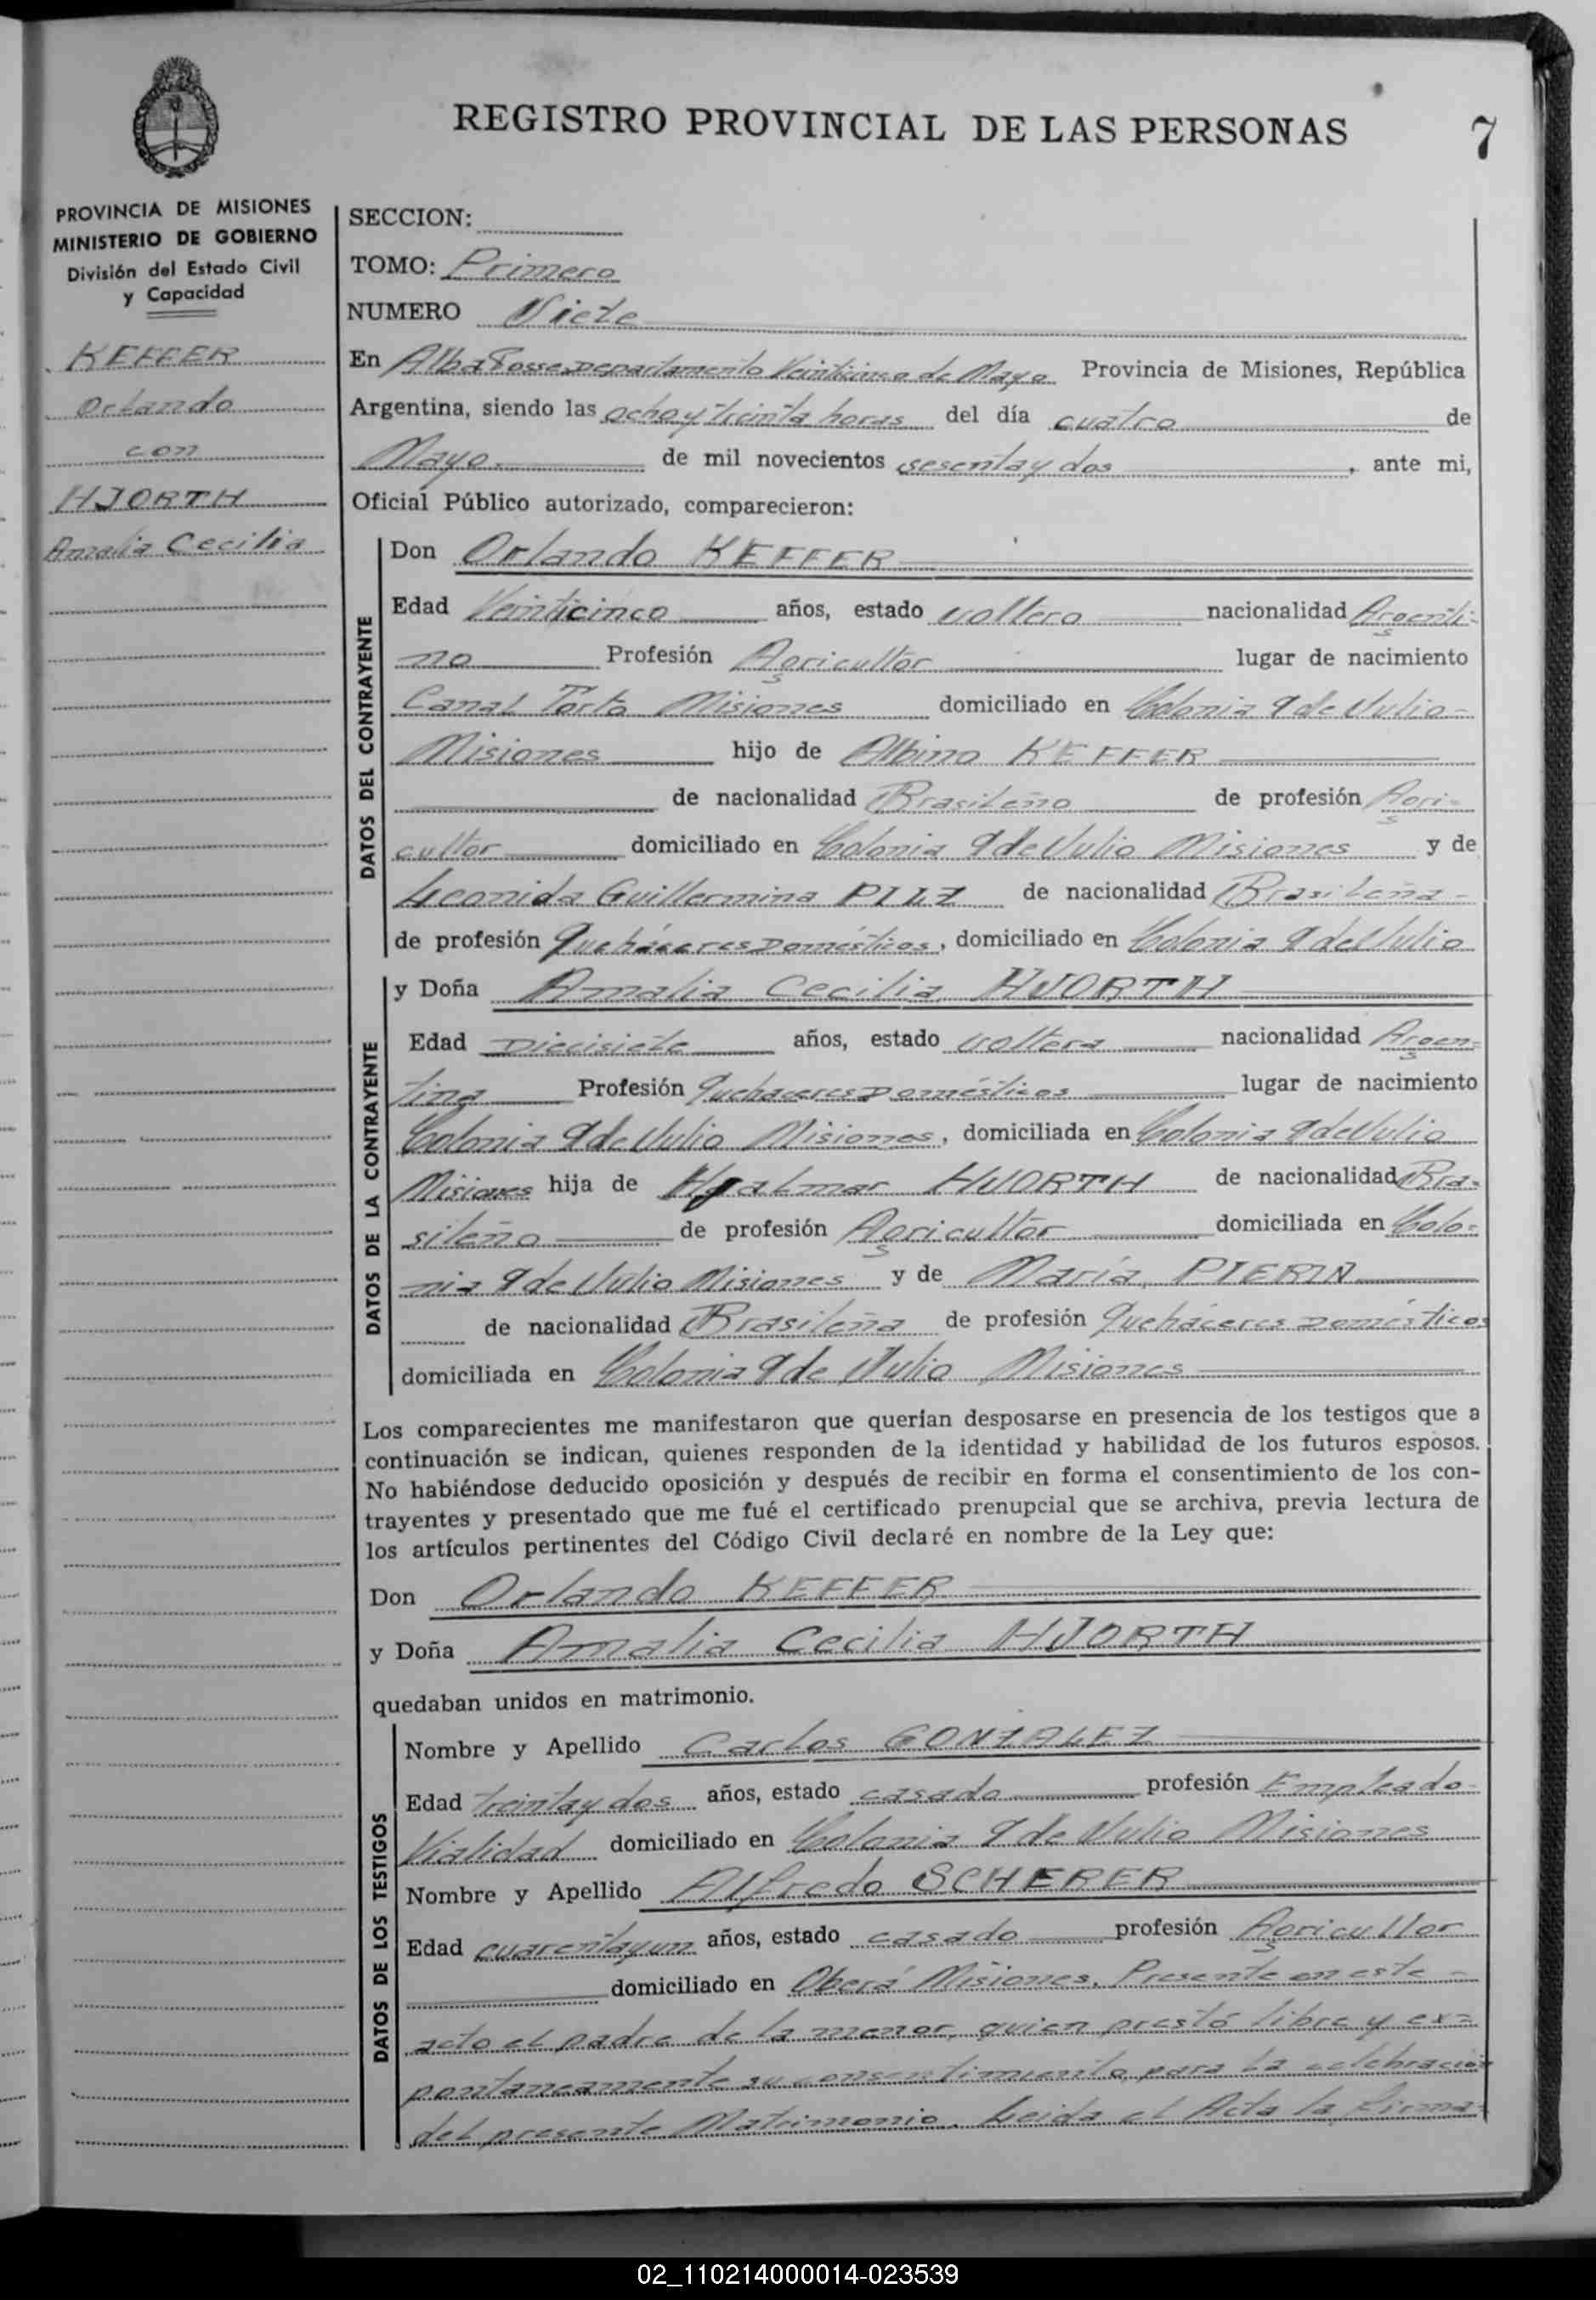 REGISTRO PROVINCIAL DE LAS PERSONAS
7
PROVINCIA DE MISIONES
MINISTERIO DE GOBIERNO
División del Estado Civil
y Capacidad
KEFFER
Orlando
con
HJORTH
Amalia Cecilia
SECCION:
TOMO: Primero
NUMERO Siete
En Alba Posse, Departamento Veinticinco de Mayo Provincia de Misiones, República
Argentina, siendo las ocho y treinta horas del día cuatro de
Mayo de mil novecientos sesenta y dos, ante mi,
Oficial Público autorizado, comparecieron:
DATOS DEL CONTRAYENTE
Don Orlando KEFFER
Edad Veinticinco años, estado soltero nacionalidad Argenti-
no Profesión Agricultor lugar de nacimiento
Canal Torto Misiones domiciliado en Colonia 9 de Julio-
Misiones hijo de Albino KEFFER
de nacionalidad Brasileño de profesión Agri-
cultor domiciliado en Colonia 9 de Julio Misiones y de
Leonida Guillermina PILZ de nacionalidad Brasileña-
de profesión Quehaceres Domésticos, domiciliado en Colonia 9 de Julio
DATOS DE LA CONTRAYENTE
y Doña Amalia Cecilia HJORTH
Edad Diecisiete años, estado soltera nacionalidad Argen-
tina Profesión Quehaceres Domésticos lugar de nacimiento
Colonia 9 de Julio Misiones, domiciliada en Colonia 9 de Julio
Misiones hija de Hjalmar HJORTH de nacionalidad Bra-
sileño de profesión Agricultor domiciliada en Colo-
nia 9 de Julio Misiones y de María PIERIN
de nacionalidad Brasileña de profesión Quehaceres Domésticos
domiciliada en Colonia 9 de Julio Misiones
Los comparecientes me manifestaron que querían desposarse en presencia de los testigos que a
continuación se indican, quienes responden de la identidad y habilidad de los futuros esposos.
No habiéndose deducido oposición y después de recibir en forma el consentimiento de los con-
trayentes y presentado que me fué el certificado prenupcial que se archiva, previa lectura de
los artículos pertinentes del Código Civil declaré en nombre de la Ley que:
Don Orlando KEFFER
y Doña Amalia Cecilia HJORTH
quedaban unidos en matrimonio.
DATOS DE LOS TESTIGOS
Nombre y Apellido Carlos GONZALEZ
Edad treinta y dos años, estado casado profesión Empleado-
Vialidad domiciliado en Colonia 9 de Julio Misiones
Nombre y Apellido Alfredo SCHERER
Edad cuarenta y un años, estado casado profesión Agricultor
domiciliado en Oberá Misiones. Presente en este-
acto el padre de la menor, quien prestó libre y ex-
pontaneamente su consentimiento, para la celebración
del presente Matrimonio. Leida el Acta la firma-
02_110214000014-023539